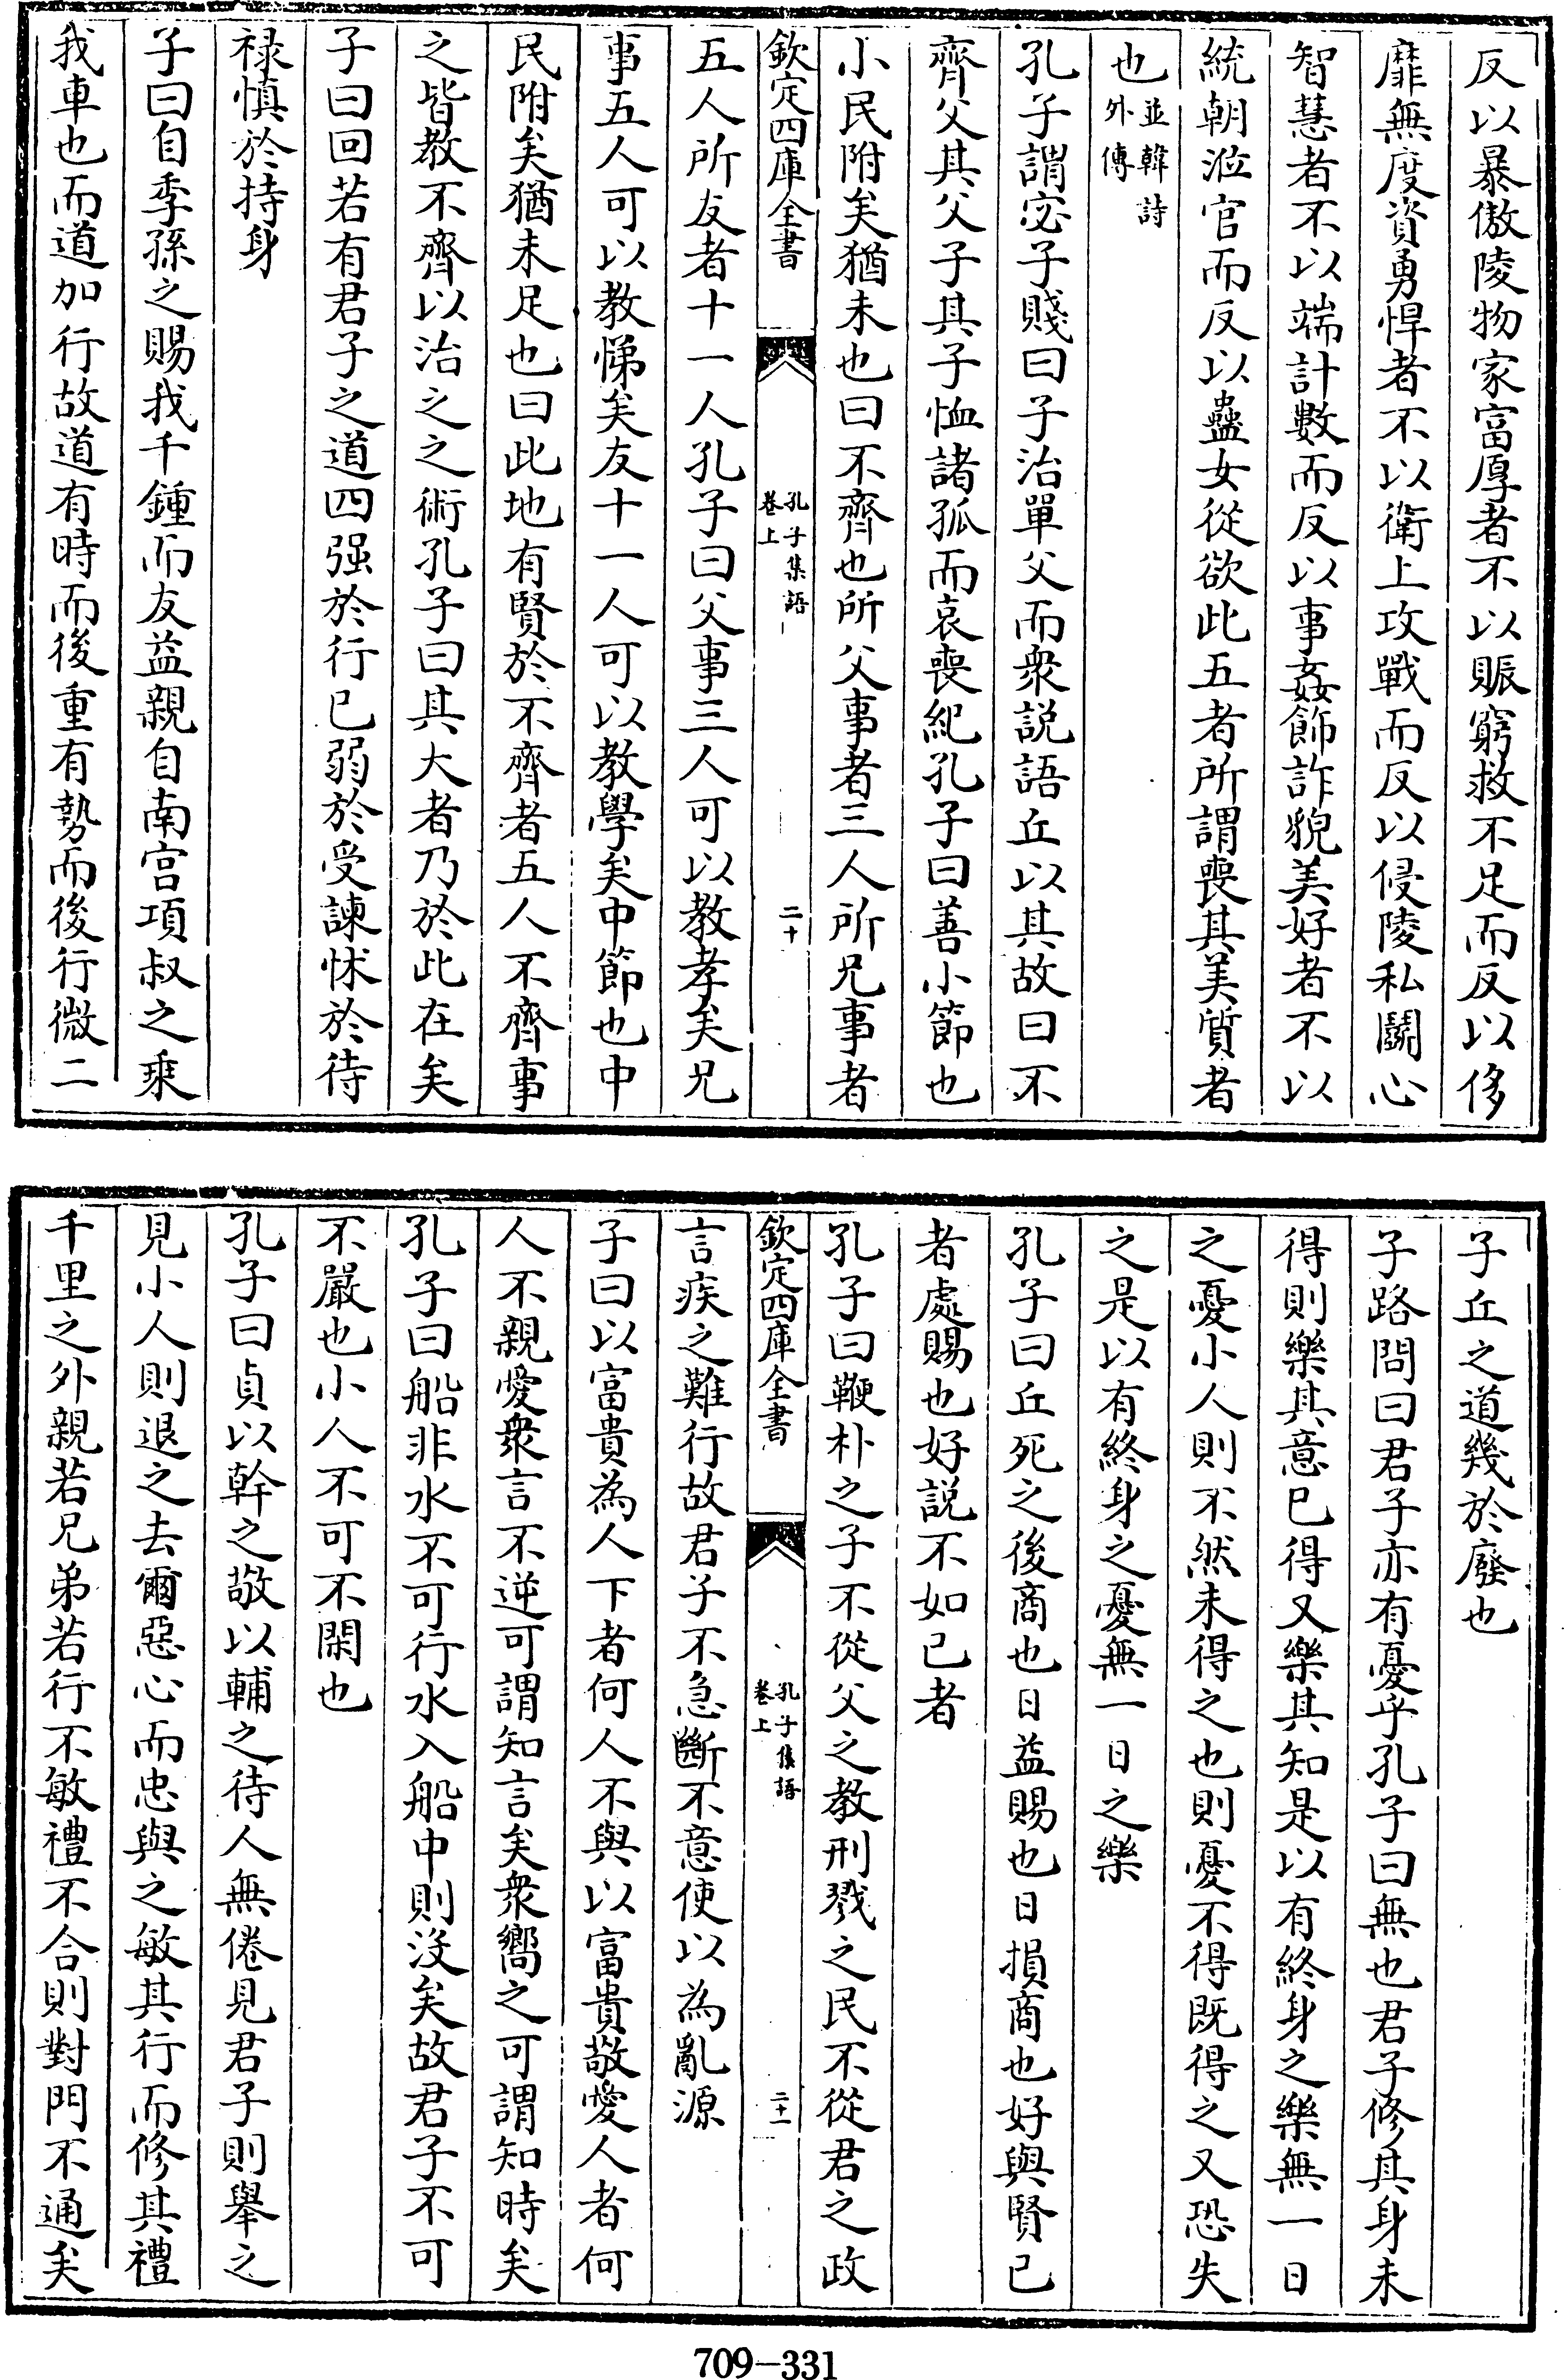 反以暴傲陵物家富厚者不以賑窮救不足而反以侈
靡無度資勇悍者不以衛上攻戰而反以侵陵私鬭心
智慧者不以端計數而反以事姦飾詐貌美好者不以
統朝涖官而反以蠱女從欲此五者所謂喪其美質者
也並韓詩外傳
孔子謂宓子賤曰子治單父而衆説語丘以其故曰不
齊父其父子其子恤諸孤而哀喪紀孔子曰善小節也
小民附矣猶未也曰不齊也所父事者三人所兄事者
欽定四庫全書 孔子集語卷上 二十
五人所友者十一人孔子曰父事三人可以教孝矣兄
事五人可以教悌矣友十一人可以教學矣中節也中
民附矣猶未足也曰此地有賢於不齊者五人不齊事
之皆教不齊以治之之術孔子曰其大者乃於此在矣
子曰回若有君子之道四强於行已弱於受諫怵於待
禄慎於持身
子曰自季孫之賜我千鍾而友益親自南宫項叔之乘
我車也而道加行故道有時而後重有勢而後行微二
子丘之道幾於廢也
子路問曰君子亦有憂乎孔子曰無也君子修其身未
得則樂其意已得又樂其知是以有終身之樂無一日
之憂小人則不然未得之也則憂不得既得之又恐失
之是以有終身之憂無一日之樂
孔子曰丘死之後商也日益賜也日損商也好與賢已
者處賜也好説不如已者
孔子曰鞭朴之子不從父之教刑戮之民不從君之政
欽定四庫全書 孔子集語卷上 二十一
言疾之難行故君子不急斷不意使以為亂源
子曰以富貴為人下者何人不與以富貴敬愛人者何
人不親愛衆言不逆可謂知言矣衆嚮之可謂知時矣
孔子曰船非水不可行水入船中則没矣故君子不可
不嚴也小人不可不閑也
孔子曰貞以幹之敬以輔之待人無倦見君子則舉之
見小人則退之去爾惡心而忠與之敏其行而修其禮
千里之外親若兄弟若行不敏禮不合則對門不通矣
709-331